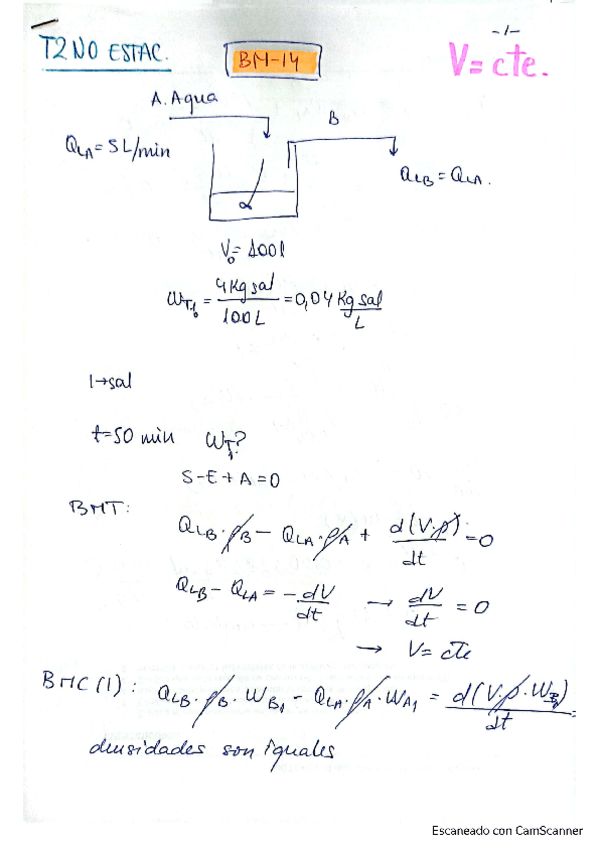 -1-
T2 NO ESTAC.
BM-14
V = cte.
A. Agua
B
Q_LA = 5 L/min
Q_LB = Q_LA.
α
V₀ = 100 l
ω_T1₀ = 4 Kg sal / 100 L = 0,04 Kg sal / L
1→sal
t=50 min ω_T1?
S-E+A=0
BMT:
Q_LB · ρ_B − Q_LA · ρ_A + d(V·ρ)/dt = 0
Q_LB − Q_LA = − dV/dt → dV/dt = 0
→ V = cte
BMC (1): Q_LB · ρ_B · W_B1 − Q_LA · ρ_A · W_A1 = d(V·ρ·W_B1)/dt =
densidades son iguales
Escaneado con CamScanner